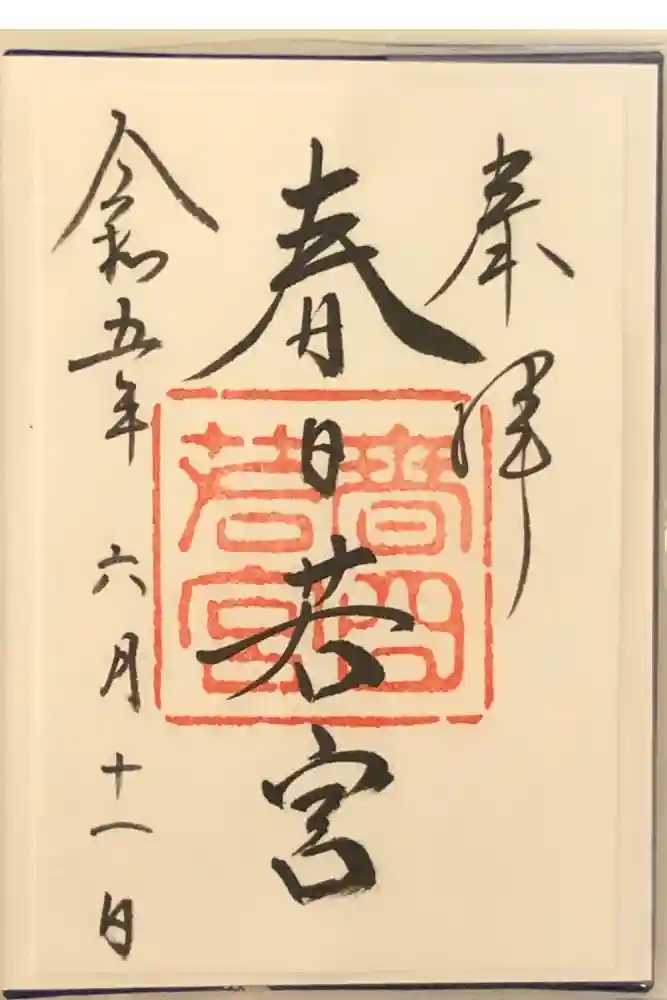 奉拝
春日若宮
春日若宮
令和五年 六月十一日